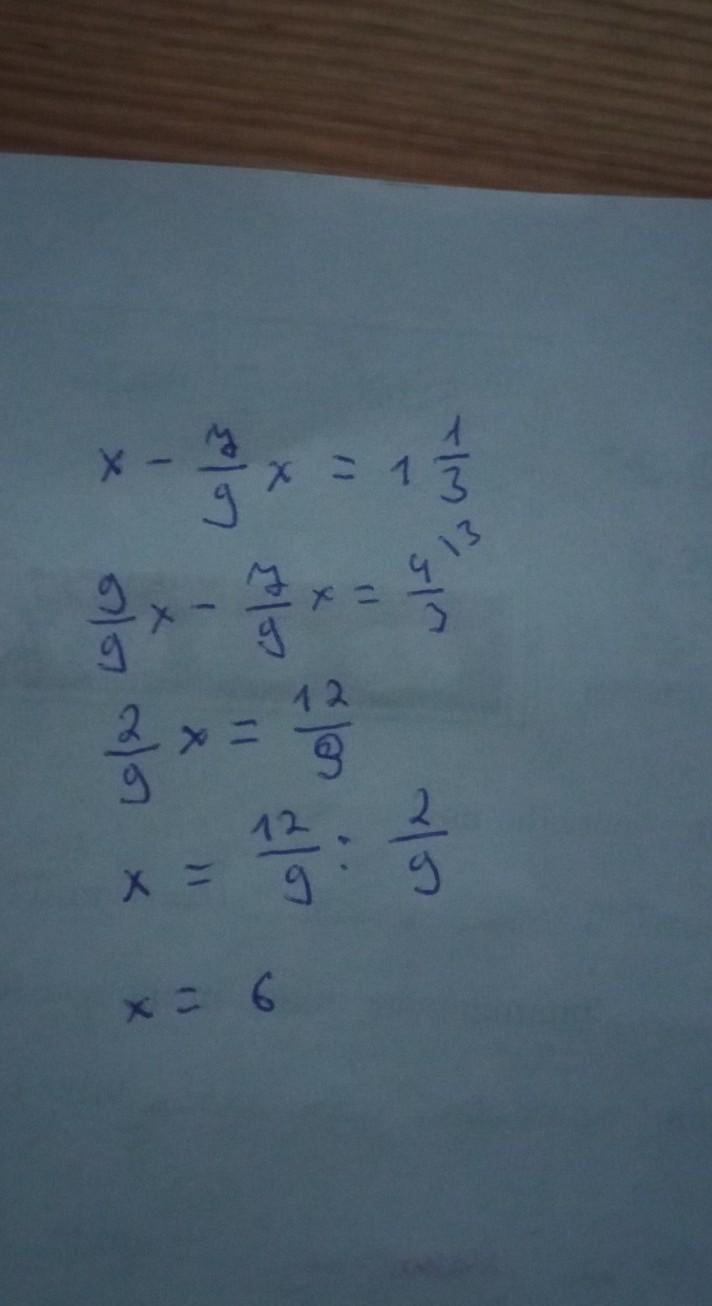 x - 7/9 x = 1 1/3
9/9 x - 7/9 x = 4/3 \3
2/9 x = 12/9
x = 12/9 : 2/9
x = 6